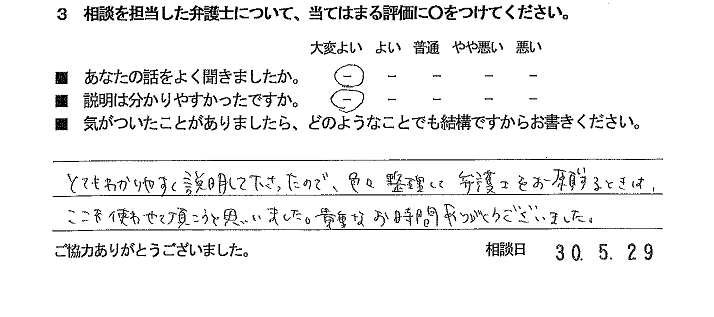 3 相談を担当した弁護士について、当てはまる評価に〇をつけてください。
大変よい よい 普通 やや悪い 悪い
■ あなたの話をよく聞きましたか。 － － － － －
■ 説明は分かりやすかったですか。 － － － － －
■ 気がついたことがありましたら、どのようなことでも結構ですからお書きください。
とてもわかりやすく説明して下さったので、色々整理して弁護士をお願するときは、
ここを使わせて頂こうと思いました。貴重なお時間ありがとうございました。
ご協力ありがとうございました。 相談日 30.5.29